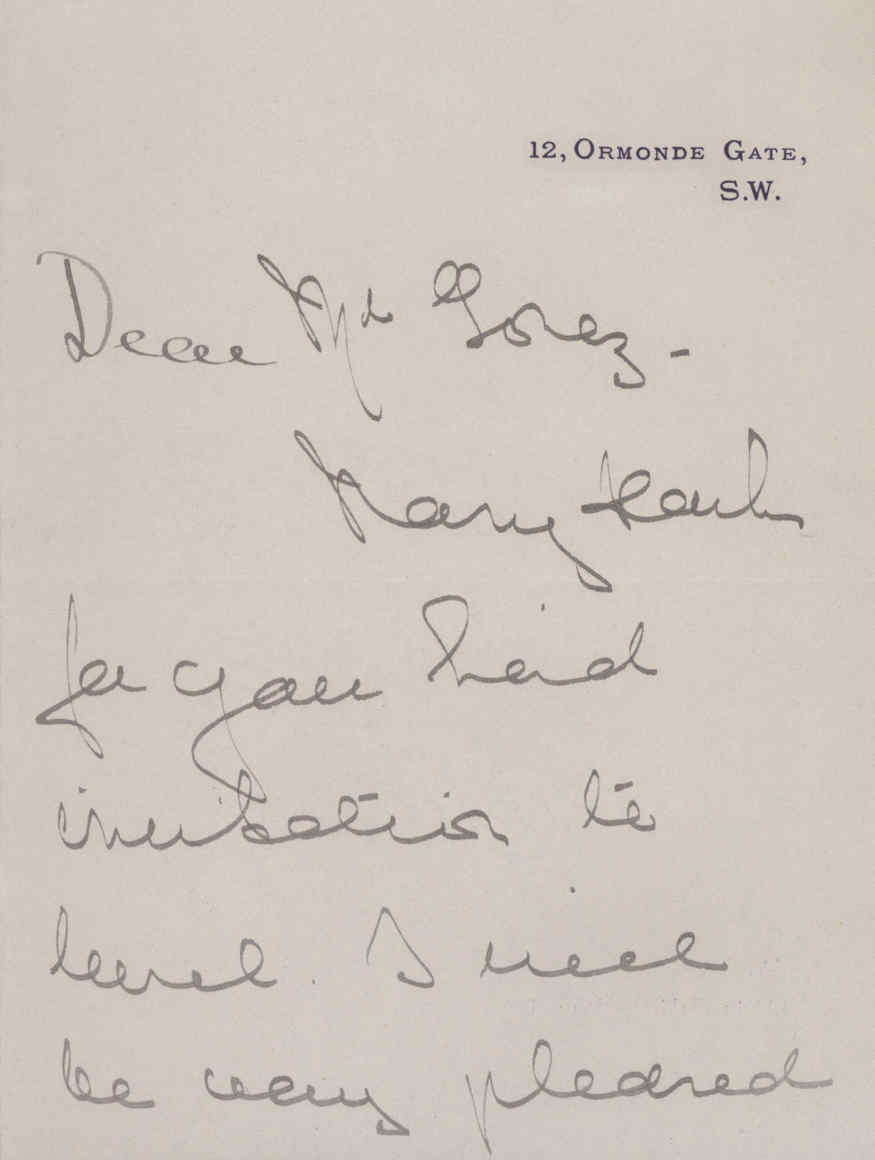 12, ORMONDE GATE,
S.W.
Dear Mr Gorez -
Many thanks
for your kind
invitation to
lunch. I will
be very pleased